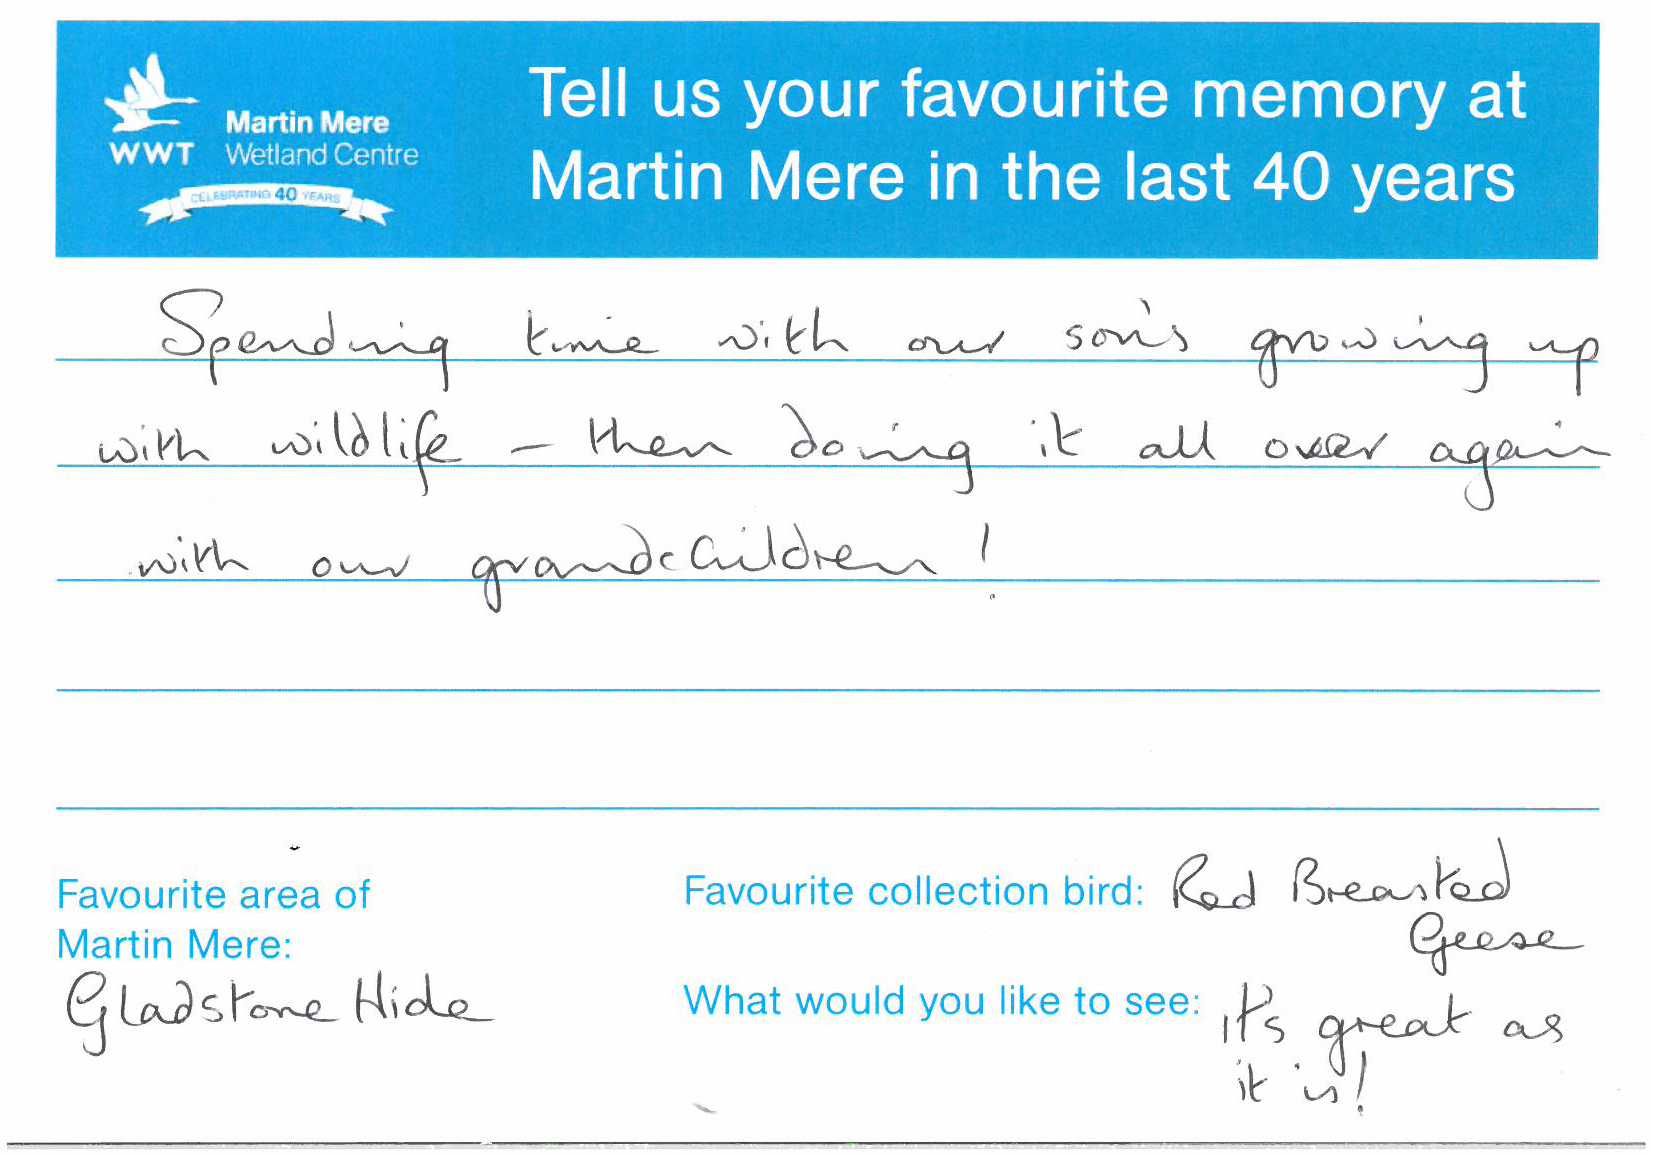 Martin Mere
WWT Wetland Centre
CELEBRATING 40 YEARS
Tell us your favourite memory at
Martin Mere in the last 40 years
Spending time with our son's growing up
with wildlife – then doing it all over again
with our grandchildren!
Favourite area of
Martin Mere:
Gladstone Hide
Favourite collection bird: Red Breasted
Geese
What would you like to see: it's great as
it is!